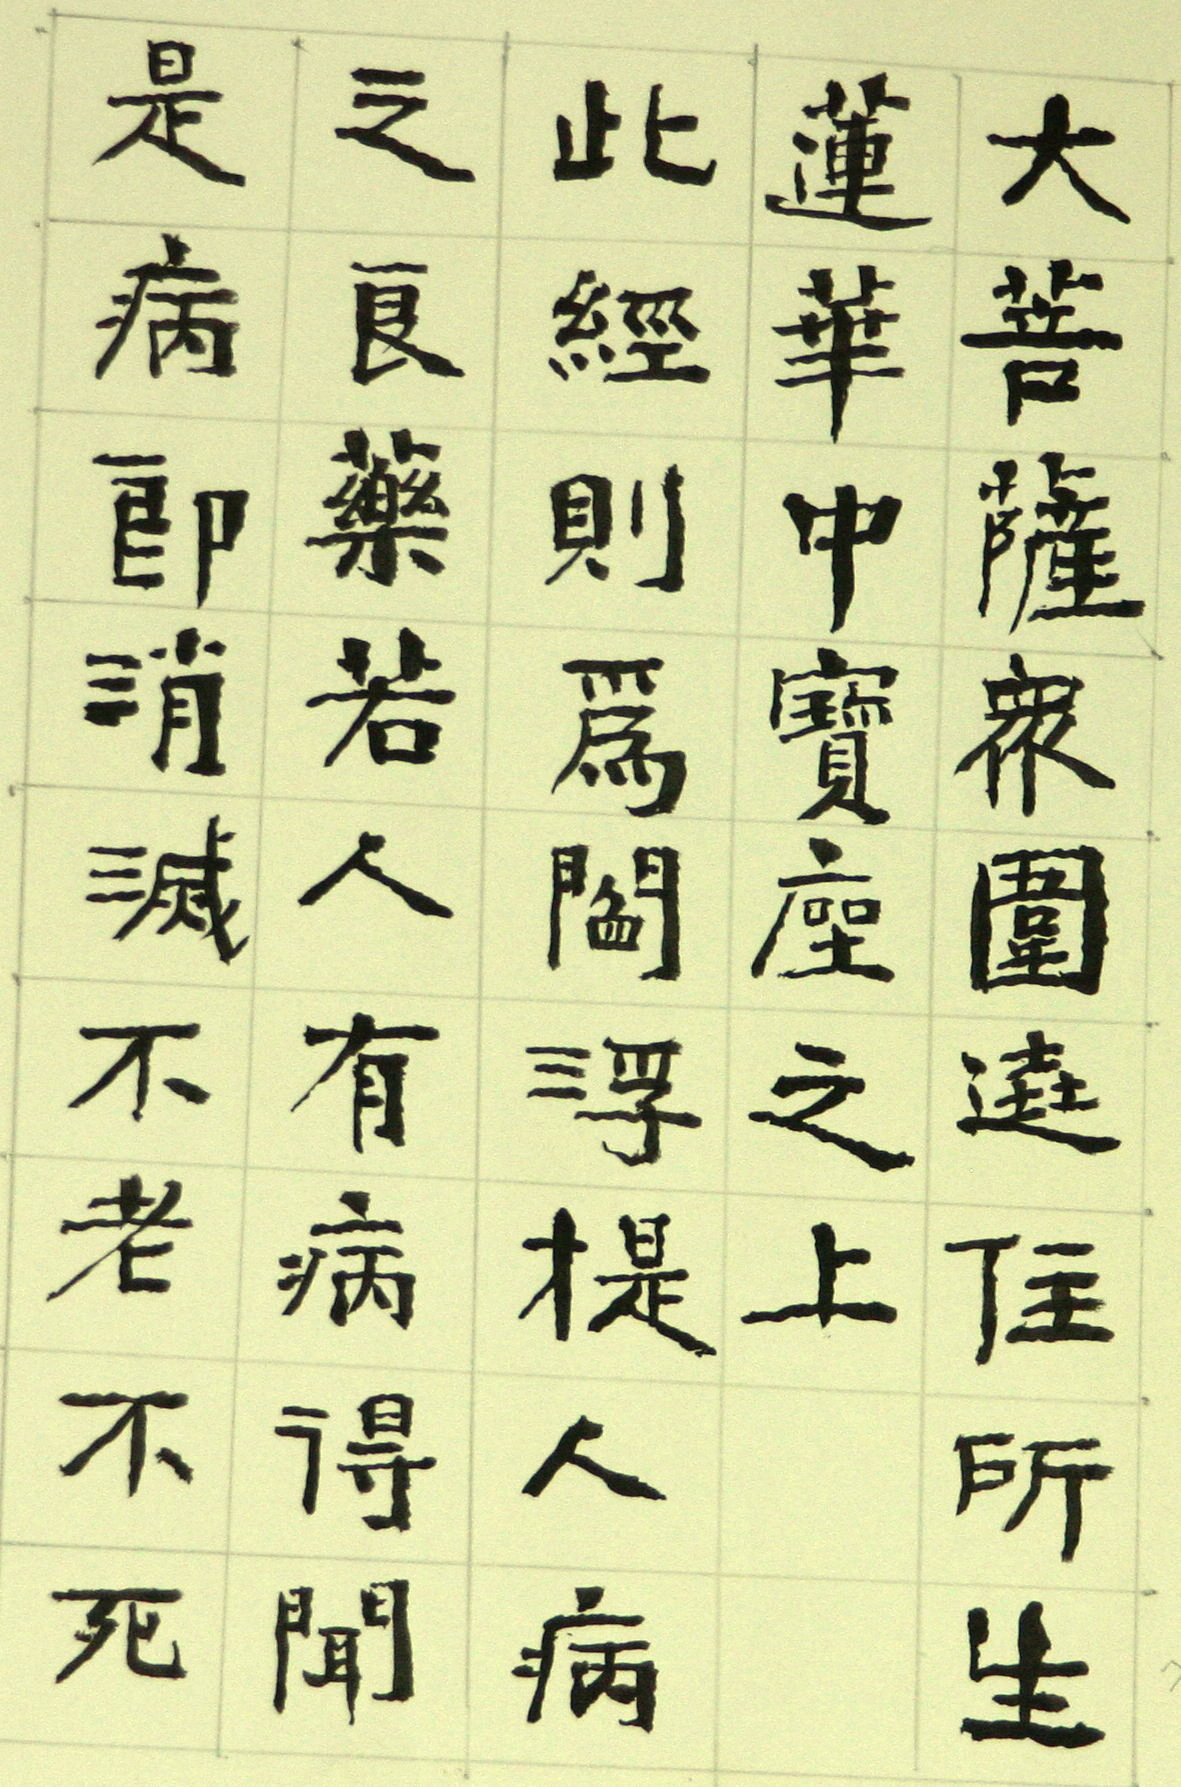 大菩薩衆圍遶住所生
蓮華中寶座之上
此經則爲閻浮提人病
之良藥若人有病得聞
是病即消滅不老不死